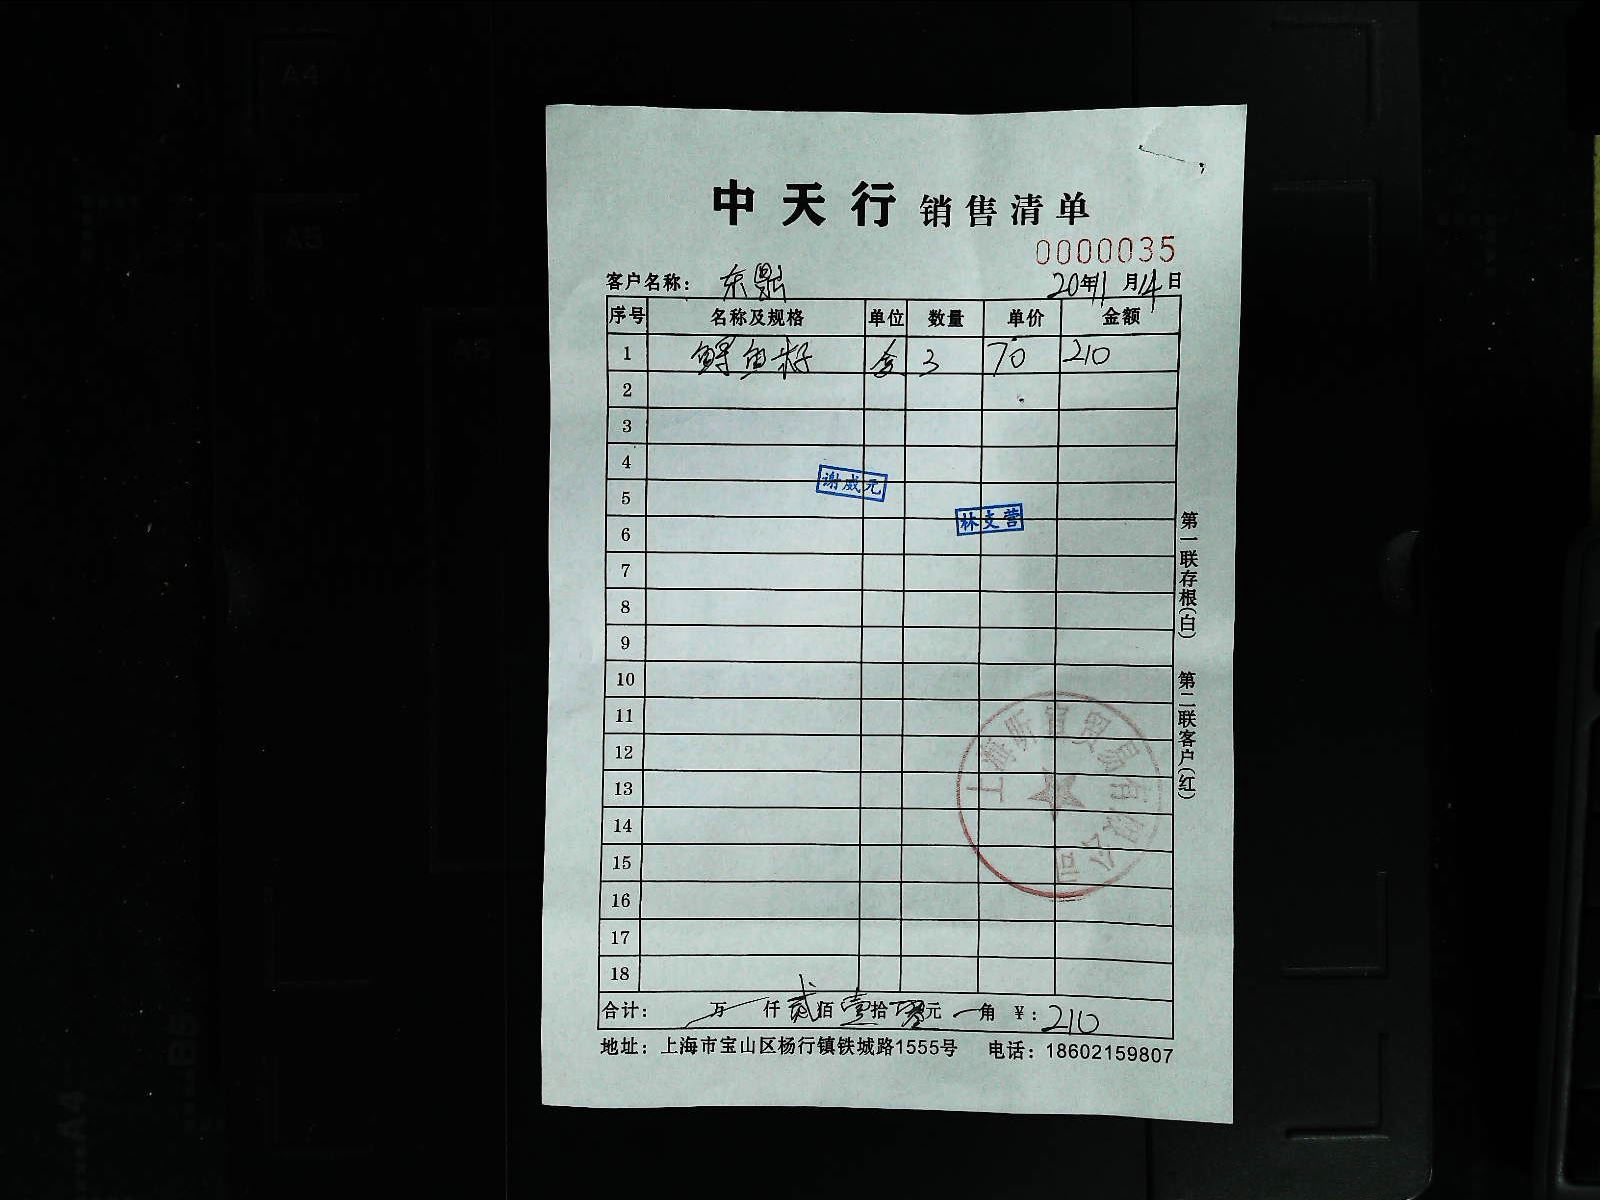 中天行 销售清单
0000035
客户名称： 东鼎 20年11月14日
序号 名称及规格 单位 数量 单价 金额
1 鲟鱼籽 盒 3 70 210
2
3
4
谢威元
5
林支营
6
7
8
9
10
11
12
13
14
15
16
17
18
上海昕宜贸易有限公司
合计： 万 仟 贰佰 壹拾 零元 角 ¥：210
地址：上海市宝山区杨行镇铁城路1555号 电话：18602159807
第一联存根(白) 第二联客户(红)
A4
A5